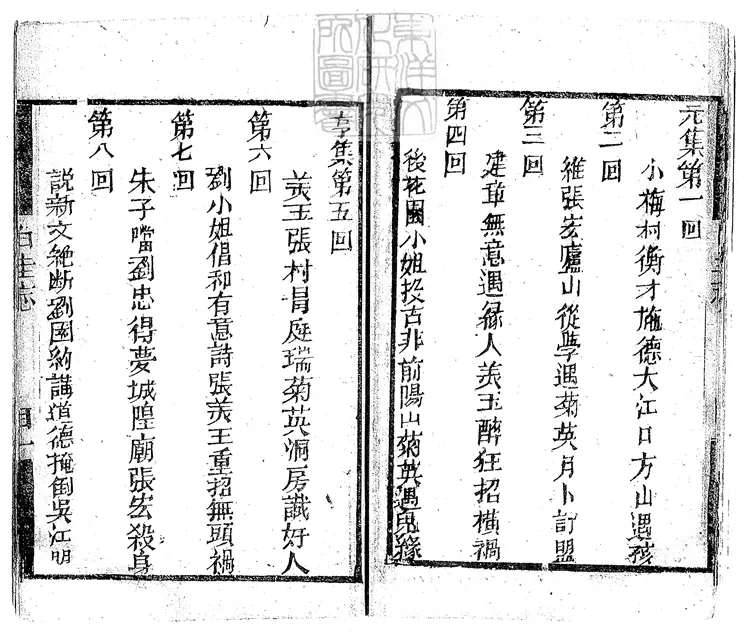 元集第一回
小梅村衡才施德大江口方山遇孩
第二回
維張宏廬山從學遇菊英月卜訂盟
第三回
建章無意遇緣人美玉醉狂招橫禍
第四回
後花園小姐投古井前陽山菊英遇鬼緣
亨集第五回
美玉張村冒庭瑞菊英洞房識好人
第六回
劉小姐倡和有意詩張美玉重招無頭禍
第七回
朱子當劉忠得夢城隍廟張宏殺身
第八回
説新文絕断劉國約講道德掩倒吳江明
白圭志
目一
東洋文化研究所圖書